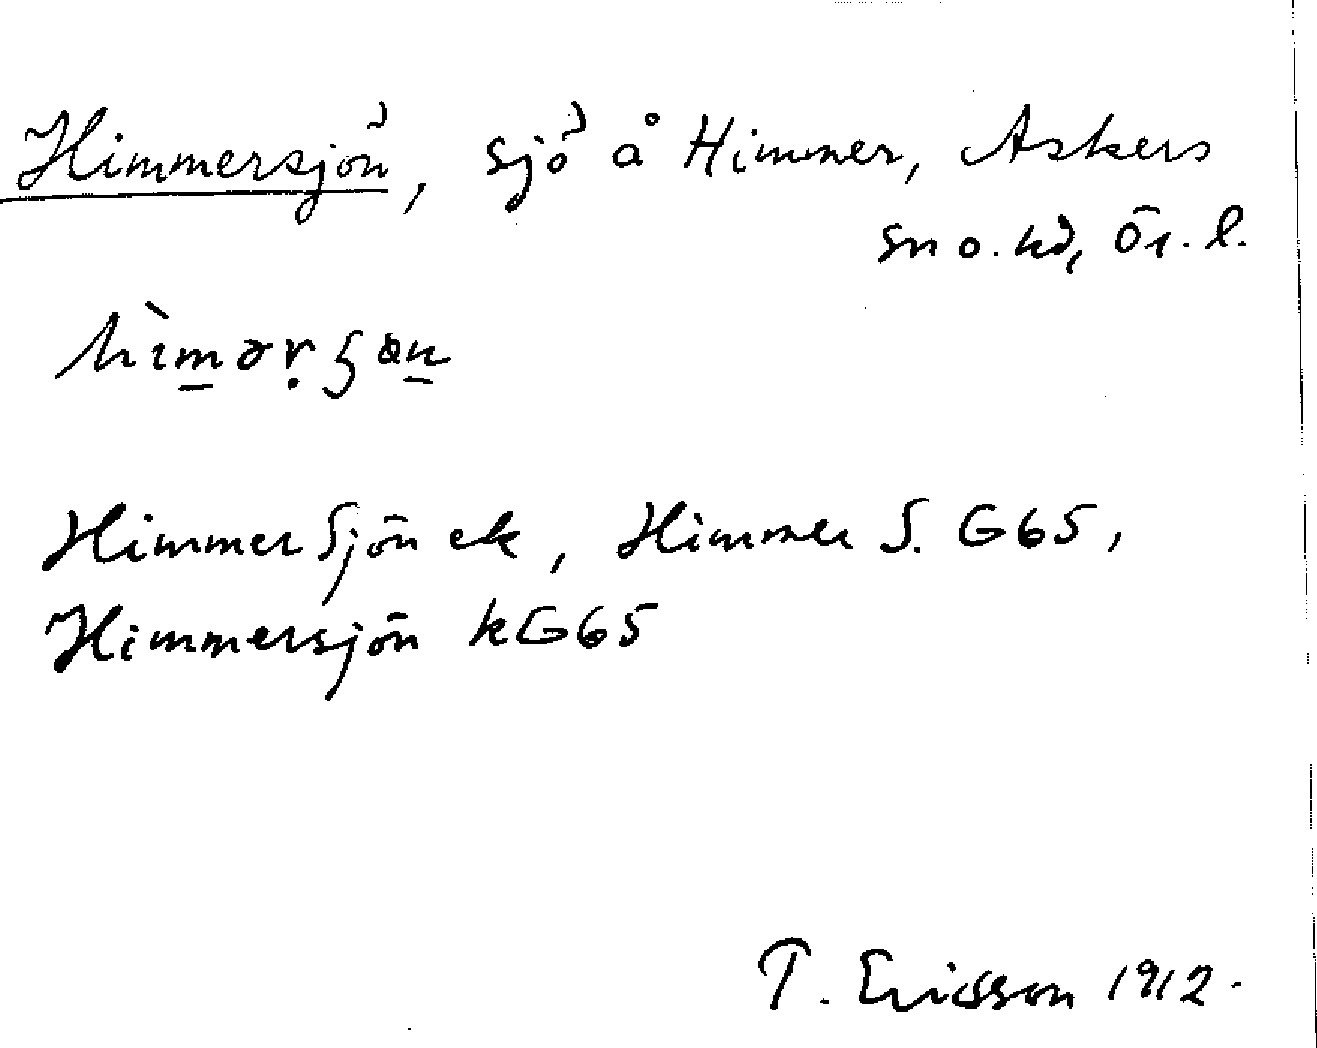 Himmersjön, sjö å Himmer, Askers
sn o. hd, Ör. l.
Himmer Sjön ek, Himmer S. G65,
Himmersjön kG65
T. Ericsson 1912.